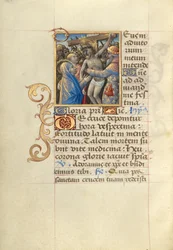 Deus in
adiuto
rium
meum
intende
Dñe
ad ad
iuuand
me fes
tina
Gloria pri
De cruce deponitur
hora vespertina:
fortitudo latuit in mente
diuina. Talem mortem su
biit vite medicina: heu
corona glorie iacuit supi
Adoramus te xpe et bñ
dicimus tibi. Quia per
sanctam crucem tuam redemisti